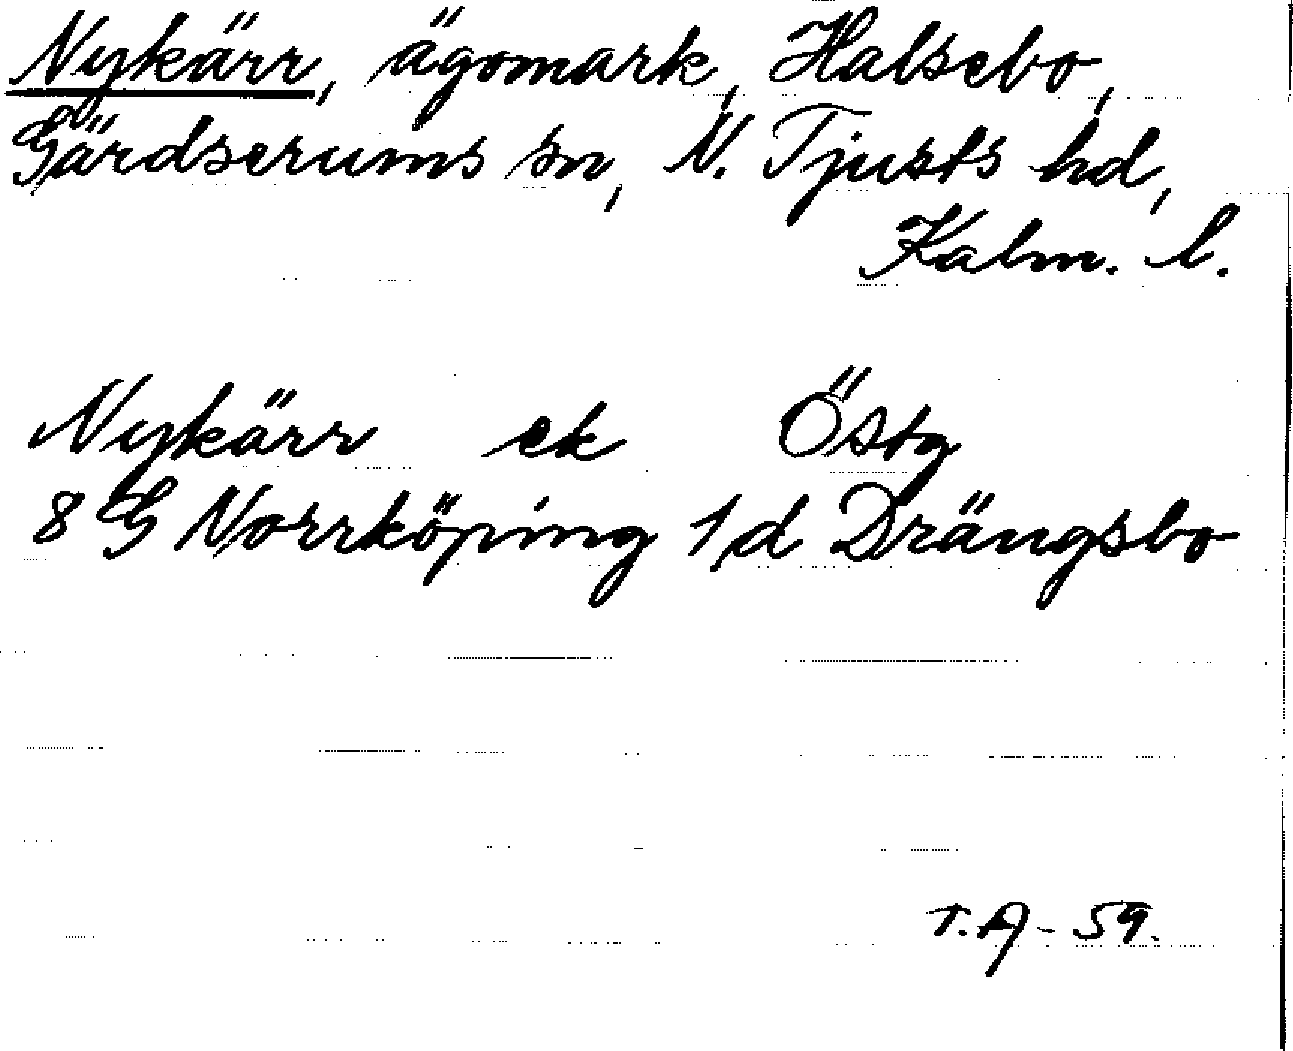 Nykärr, ägomark, Halsebo,
Gärdserums sn, N. Tjusts hd,
Kalm. l.
Nykärr ek Östg
8 G Norrköping 1/d Drängsbo
T.A - 59.